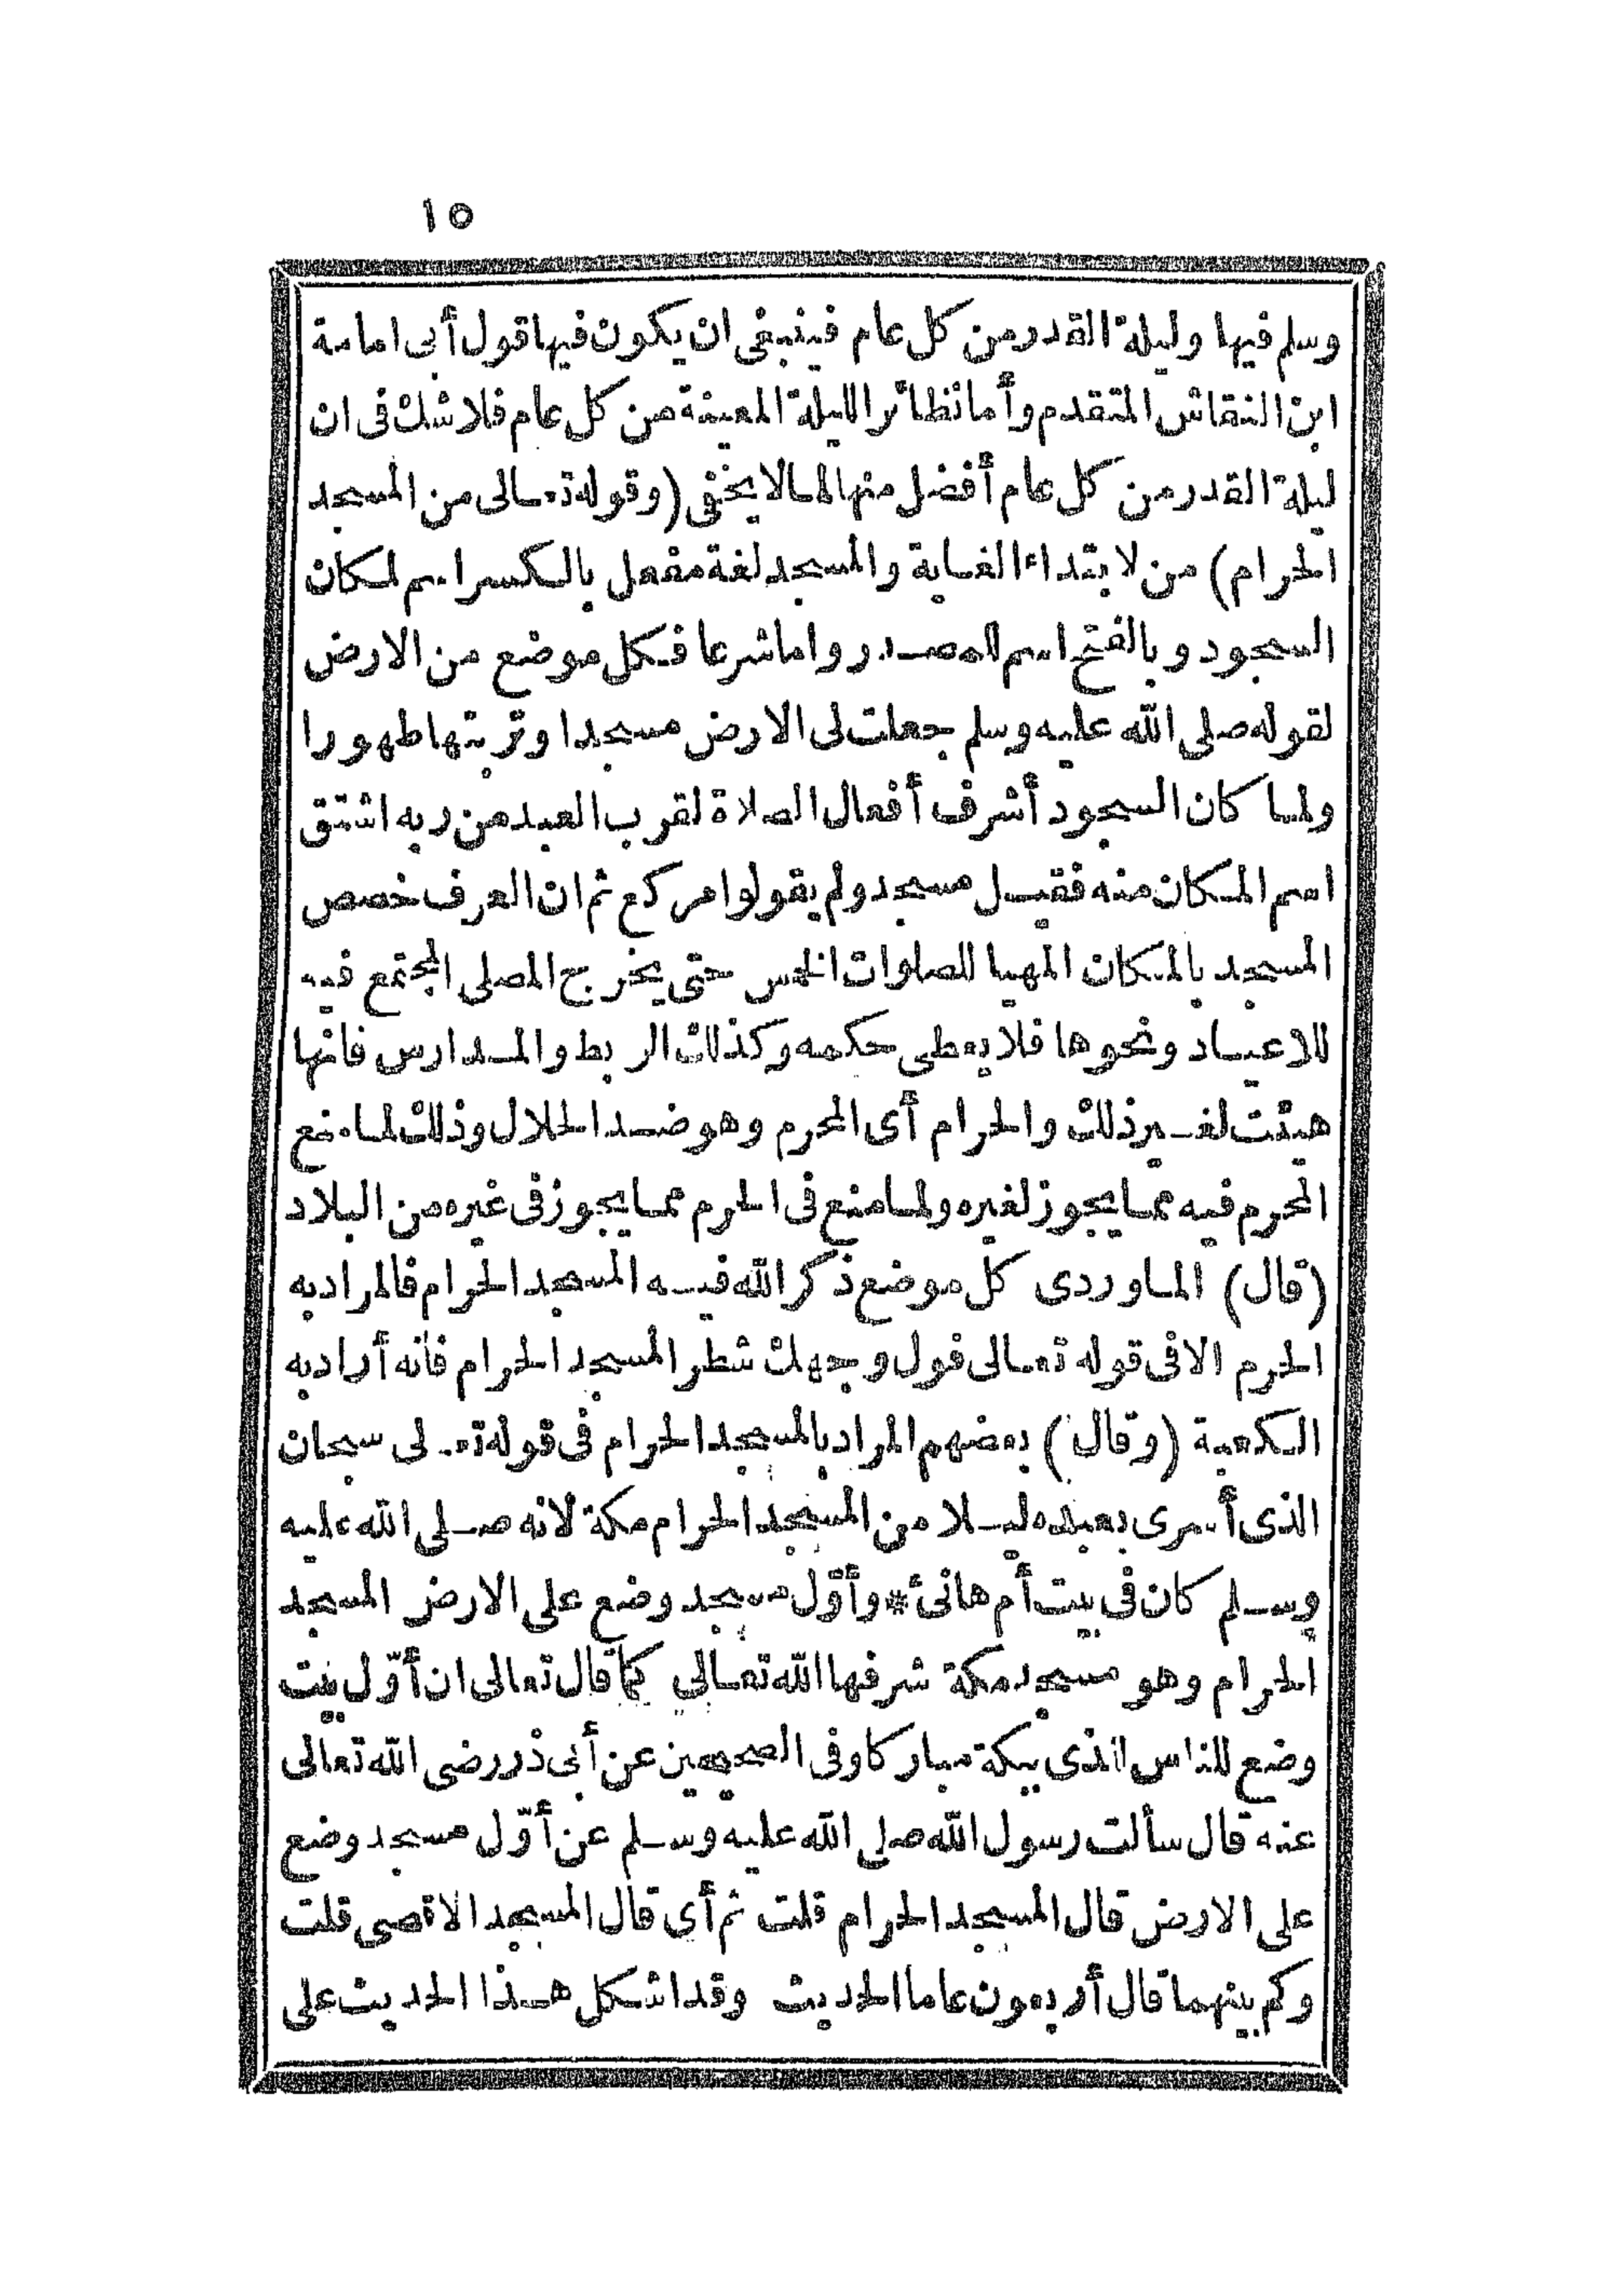 ١٥
وسلم فيها وليلة القدر من كل عام فينبغى ان يكون فيها قول أبى امامة
ابن النقاش المتقدم وأما نظائر الليلة المعينة من كل عام فلا شك فى ان
ليلة القدر من كل عام أفضل منها لما لا يخفى (وقوله تعالى من المسجد
الحرام) من لابتداء الغاية والمسجد لغة مفعل بالكسر اسم لمكان
السجود وبالفتح اسم للمصدر واما شرعا فكل موضع من الارض
لقوله صلى الله عليه وسلم جعلت لى الارض مسجدا وتربتها طهورا
ولما كان السجود أشرف أفعال الصلاة لقرب العبد من ربه اشتق
اسم المكان منه فقيل مسجد ولم يقولوا مركع ثم ان العرف خصص
المسجد بالمكان المهيا للصلوات الخمس حتى يخرج المصلى المجتمع فيه
للاعياد ونحوها فلا يعطى حكمه وكذلك الربط والمدارس فانها
هيئت لغير ذلك والحرام أى المحرم وهو ضد الحلال وذلك لما منع
المحرم فيه مما يجوز لغيره ولما منع فى الحرم مما يجوز فى غيره من البلاد
(قال) الماوردى كل موضع ذكر الله فيه المسجد الحرام فالمراد به
الحرم الا فى قوله تعالى فول وجهك شطر المسجد الحرام فأنه أراد به
الكعبة (وقال) بعضهم المراد بالمسجد الحرام فى قوله تعالى سبحان
الذى أسرى بعبده ليلا من المسجد الحرام مكة لانه صلى الله عليه
وسلم كان فى بيت أم هانئ * وأوّل مسجد وضع على الارض المسجد
الحرام وهو مسجد مكة شرفها الله تعالى كما قال تعالى ان أوّل بيت
وضع للناس للذى ببكة مباركا وفى الصحيحين عن أبى ذر رضى الله تعالى
عنه قال سألت رسول الله صلى الله عليه وسلم عن أوّل مسجد وضع
على الارض قال المسجد الحرام قلت ثم أى قال المسجد الاقصى قلت
وكم بينهما قال أربعون عاما الحديث وقد اشكل هذا الحديث على